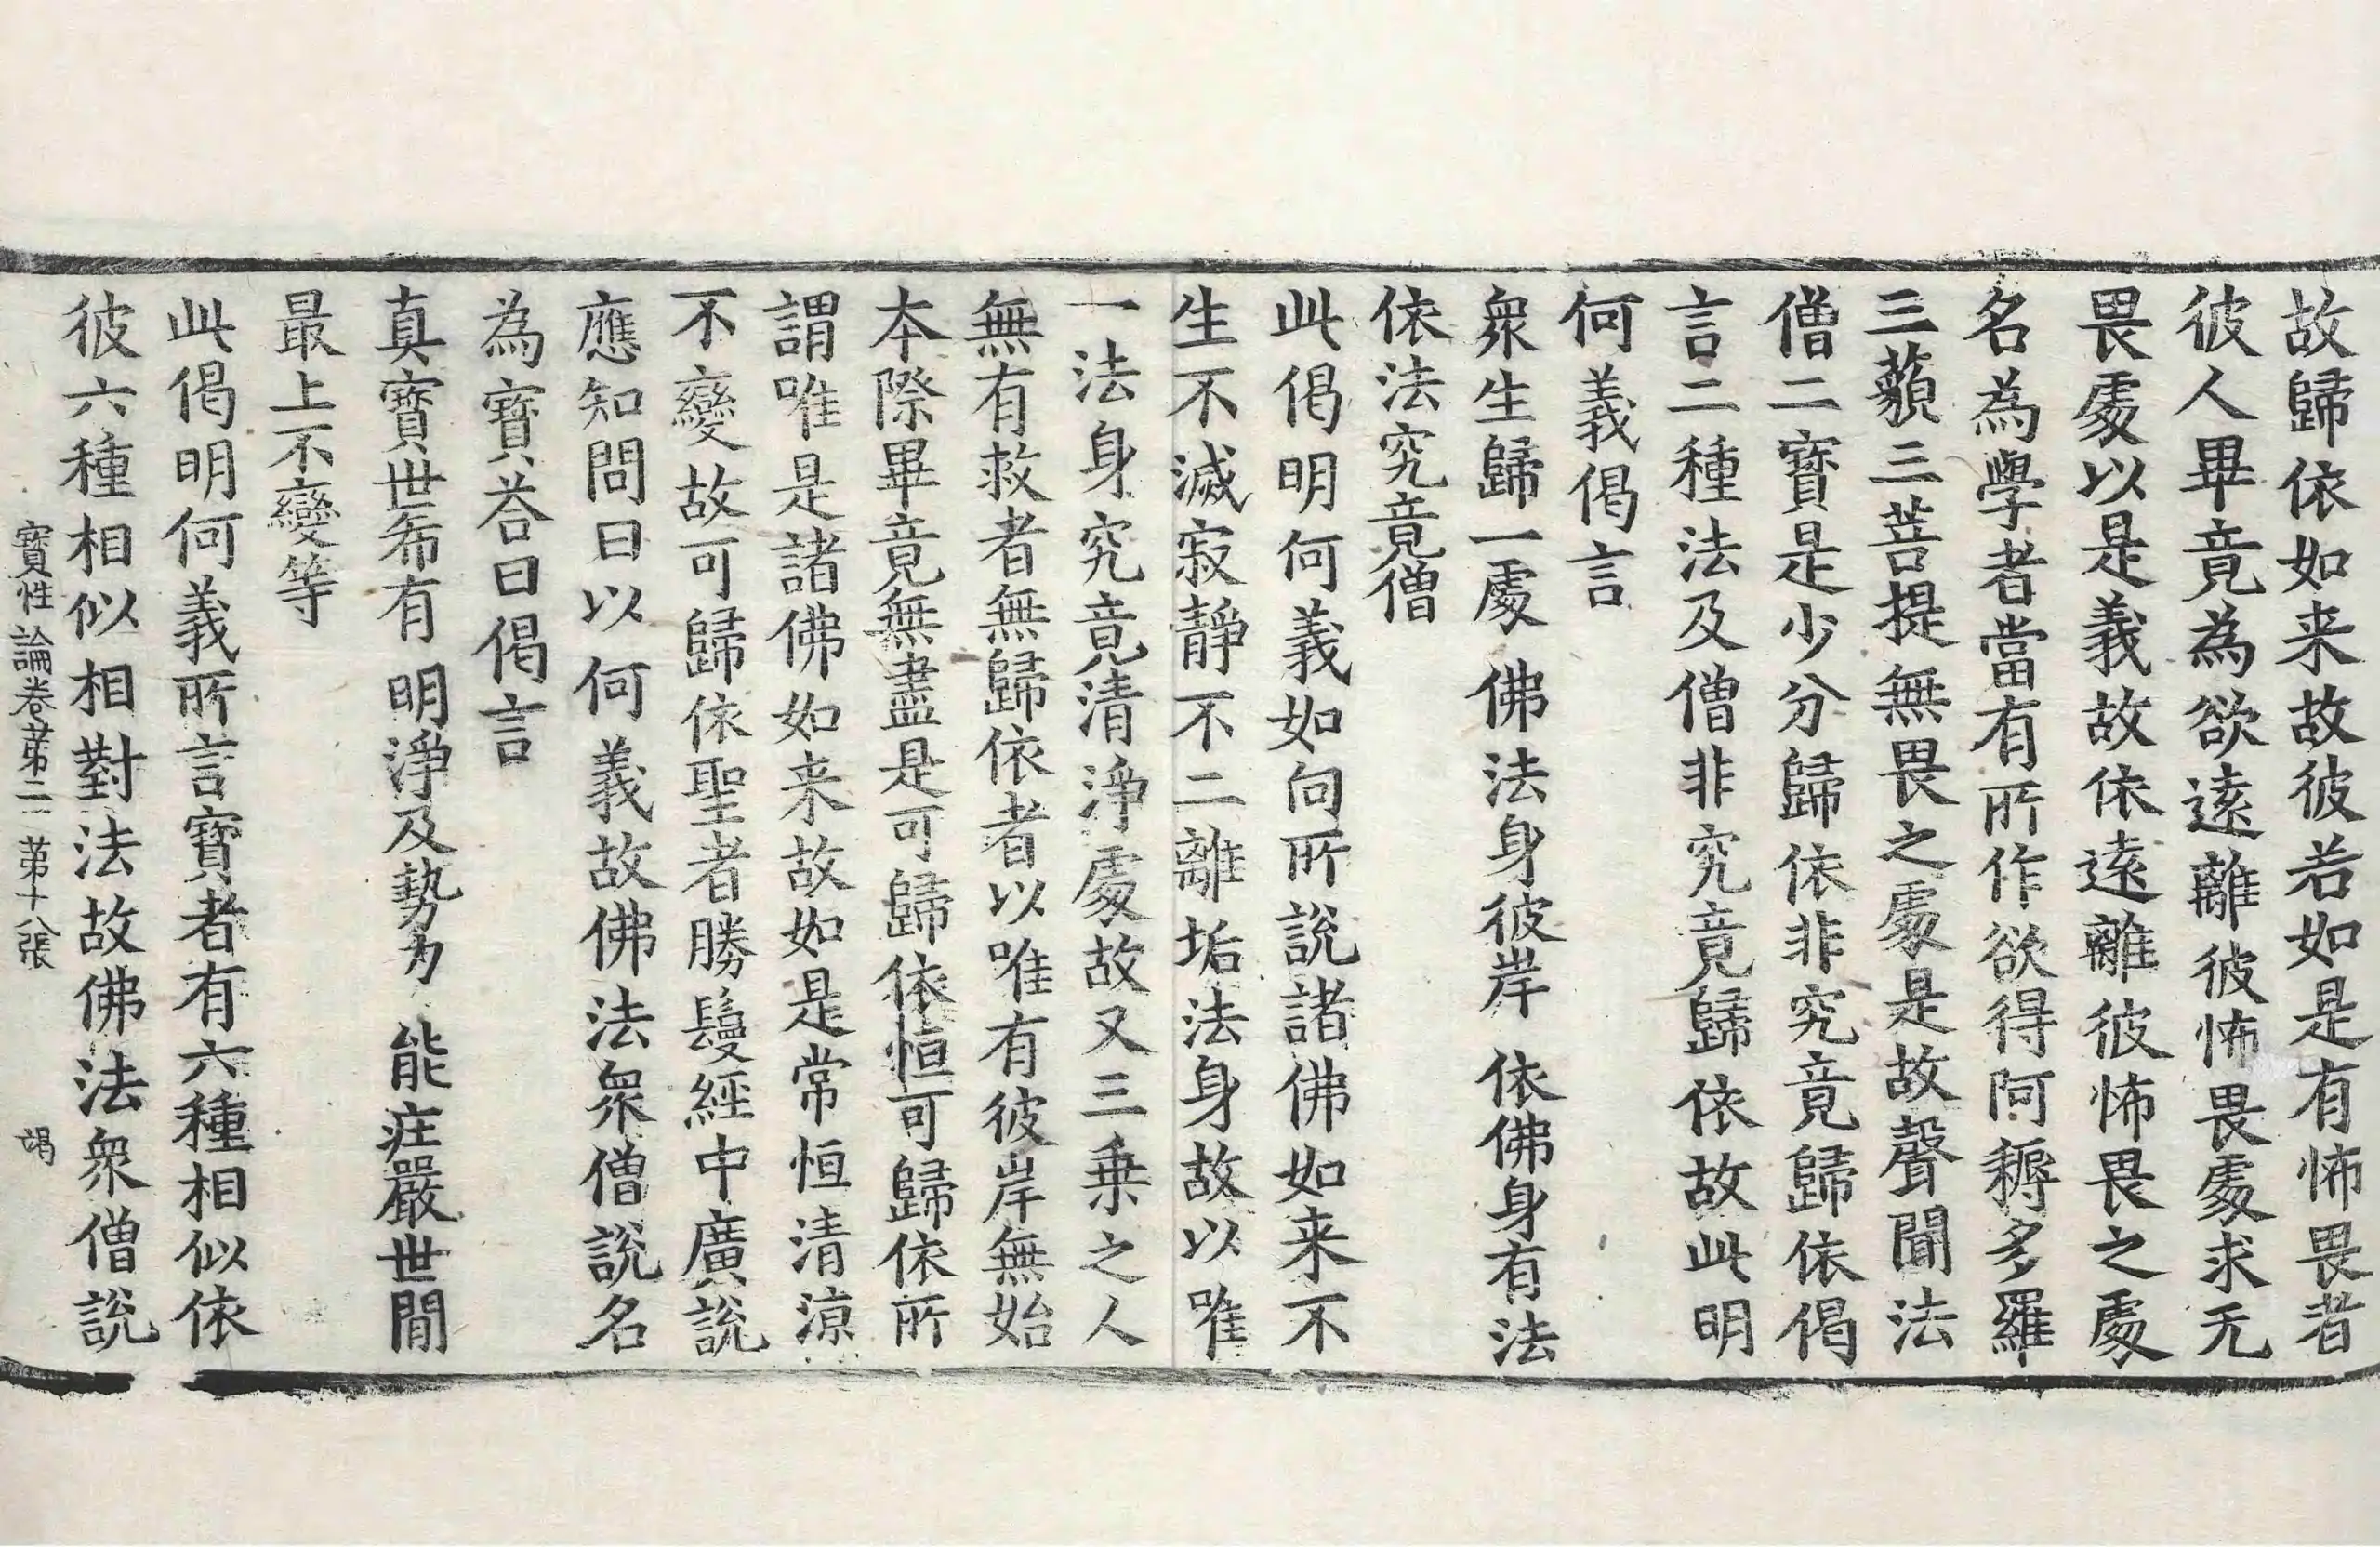 故歸依如来故彼若如是有怖畏者
彼人畢竟為欲遠離彼怖畏處求无
畏處以是義故依遠離彼怖畏之處
名為學者當有所作欲得阿耨多羅
三藐三菩提無畏之處是故聲聞法
僧二寶是少分歸依非究竟歸依偈
言二種法及僧非究竟歸依故此明
何義偈言
衆生歸一處 佛法身彼岸 依佛身有法
依法究竟僧
此偈明何義如向所説諸佛如来不
生不滅寂靜不二離垢法身故以唯
一法身究竟清淨處故又三乗之人
無有救者無歸依者以唯有彼岸無始
夲際畢竟無盡是可歸依恒可歸依所
謂唯是諸佛如来故如是常恒清涼
不變故可歸依聖者勝鬘經中廣説
應知問曰以何義故佛法衆僧説名
為寶荅曰偈言
真寶世希有 明淨及勢力 能庄嚴世間
最上不變等
此偈明何義所言寶者有六種相似依
彼六種相似相對法故佛法衆僧説
寶性論卷苐二 苐十八張 竭